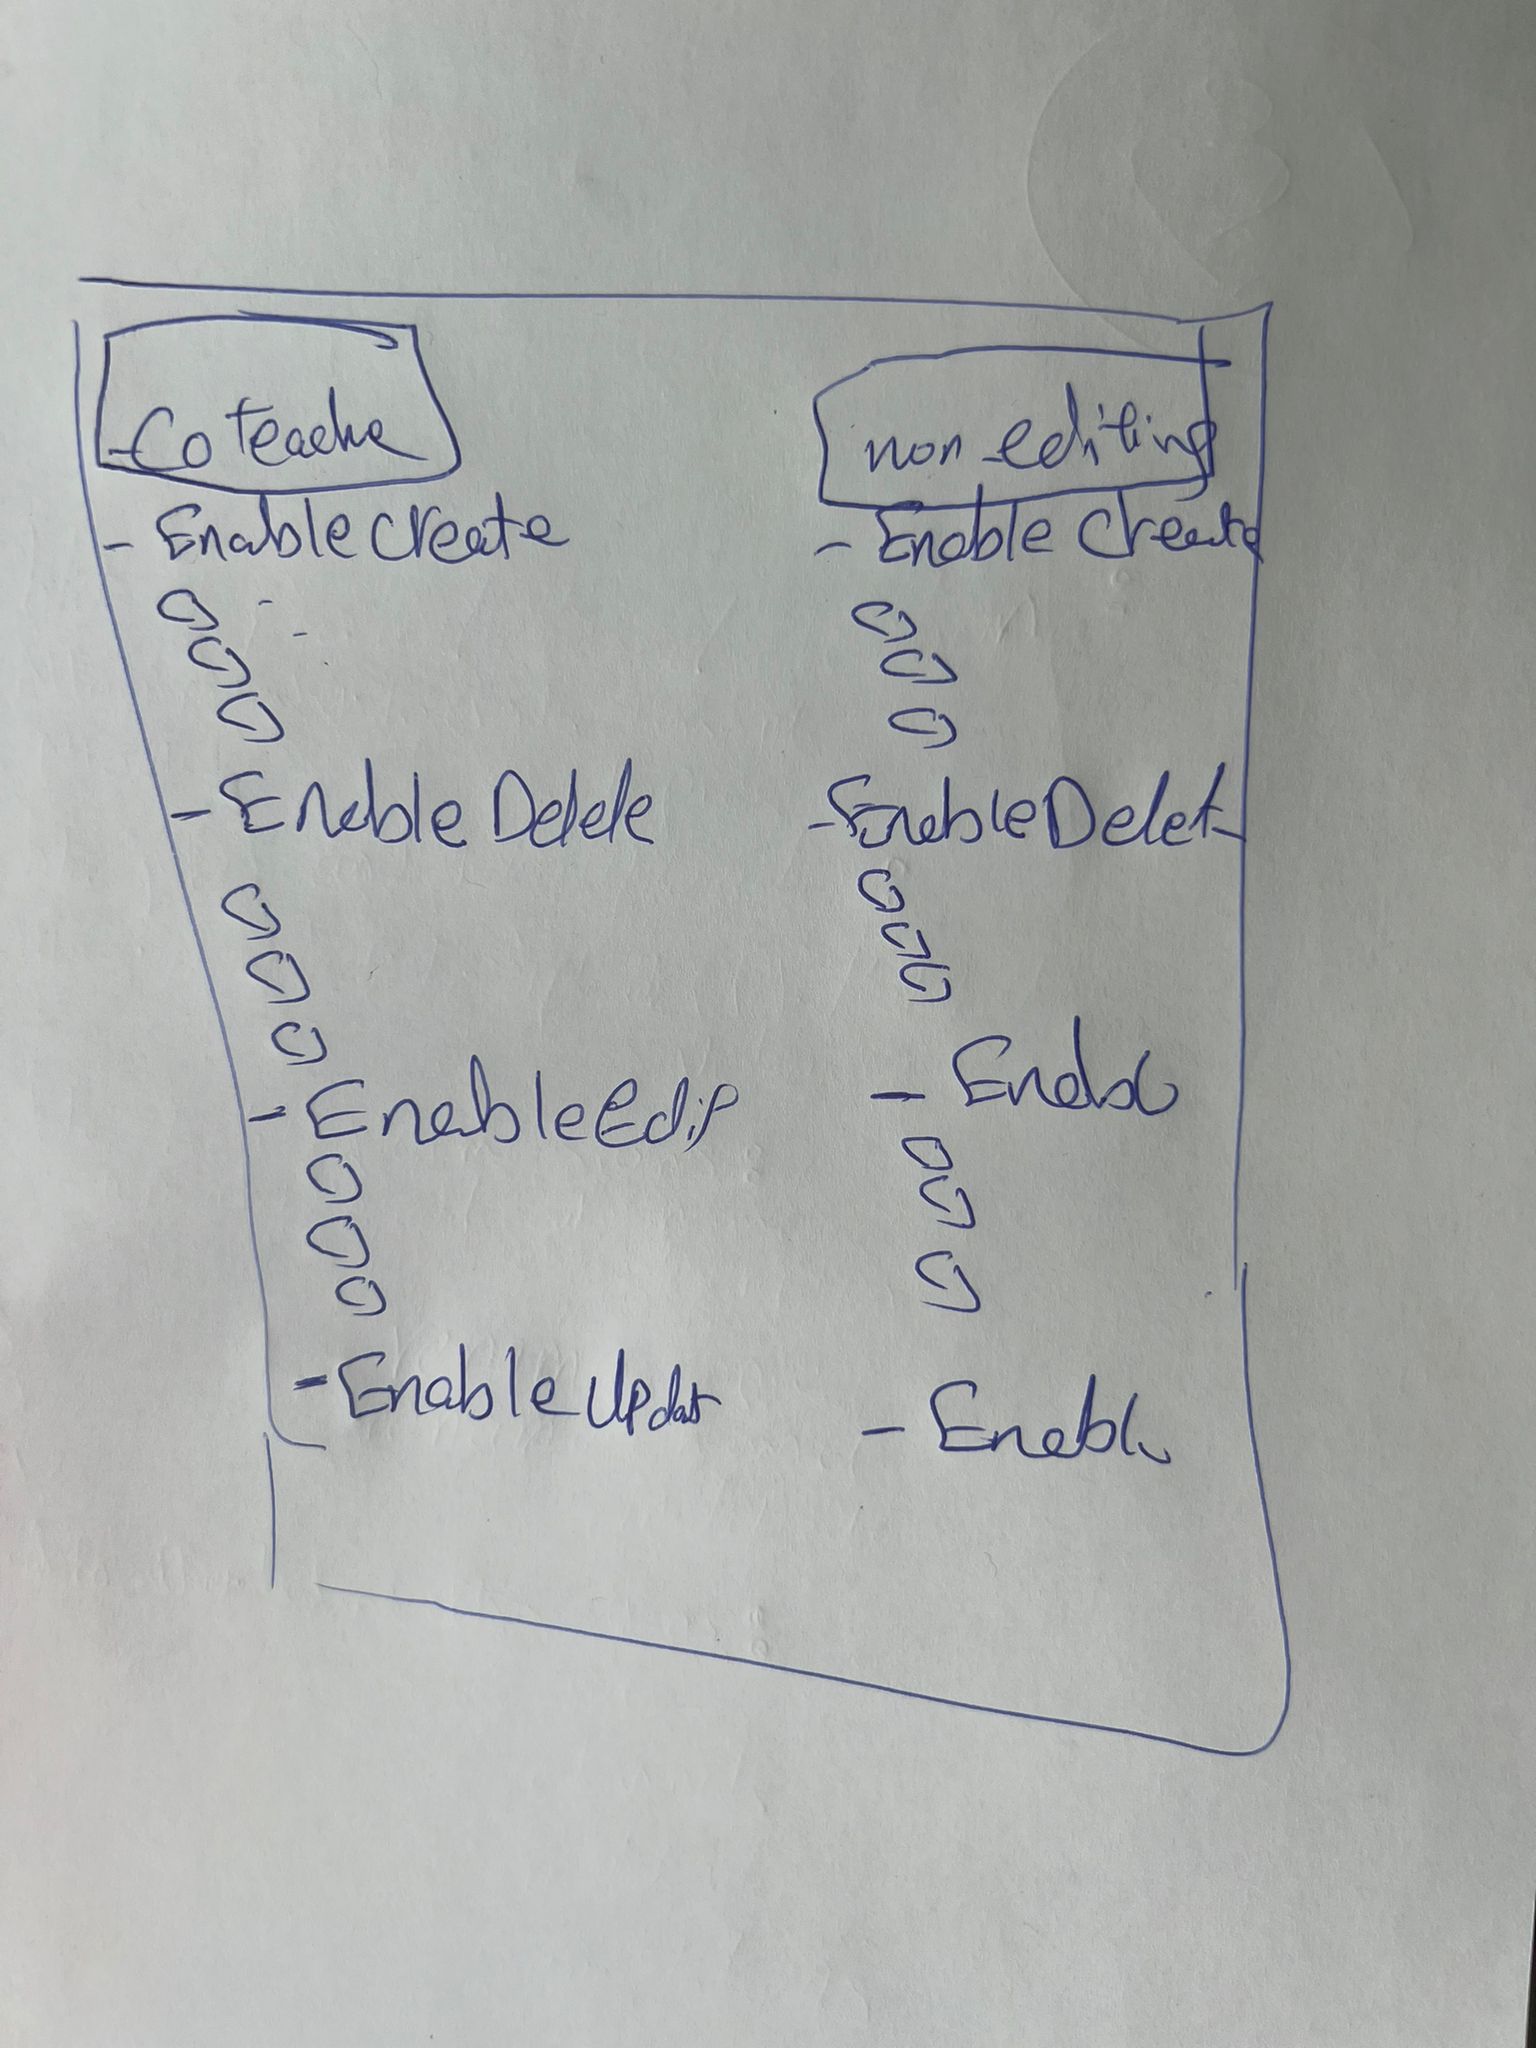 - Co Teache
- Enable Create
- Enable Delele
- Enable Edit
- Enable Updat
non-editing
- Enable Create
- Enable Delet
- Enabl
- Enabl